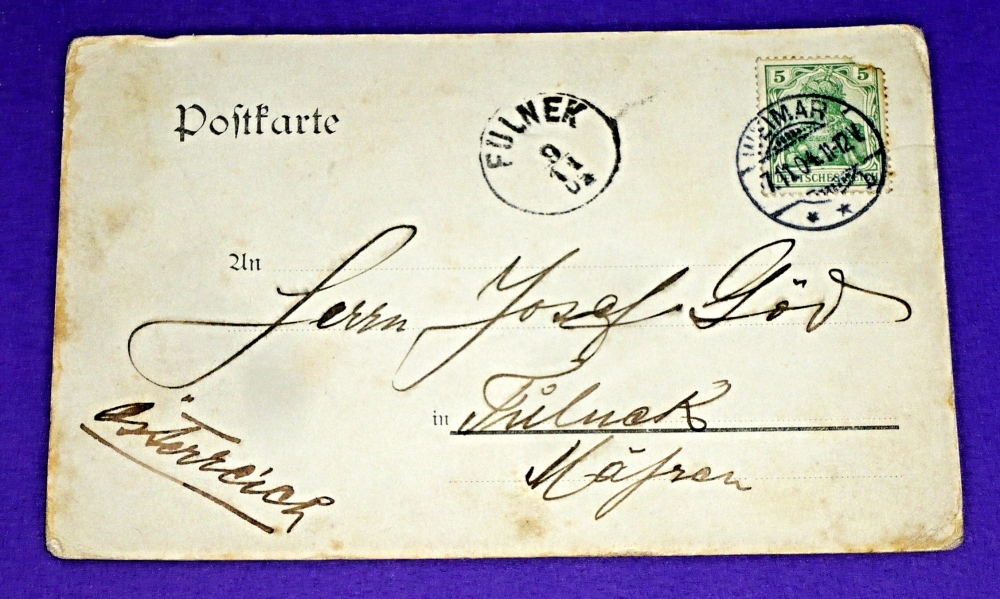 Postkarte
FULNEK
9/11
04
5 5
DEUTSCHES REICH
WEIMAR
7.11.04.11-12V.
An Herrn Josef Göd
in Fulnek
Mähren
Österreich